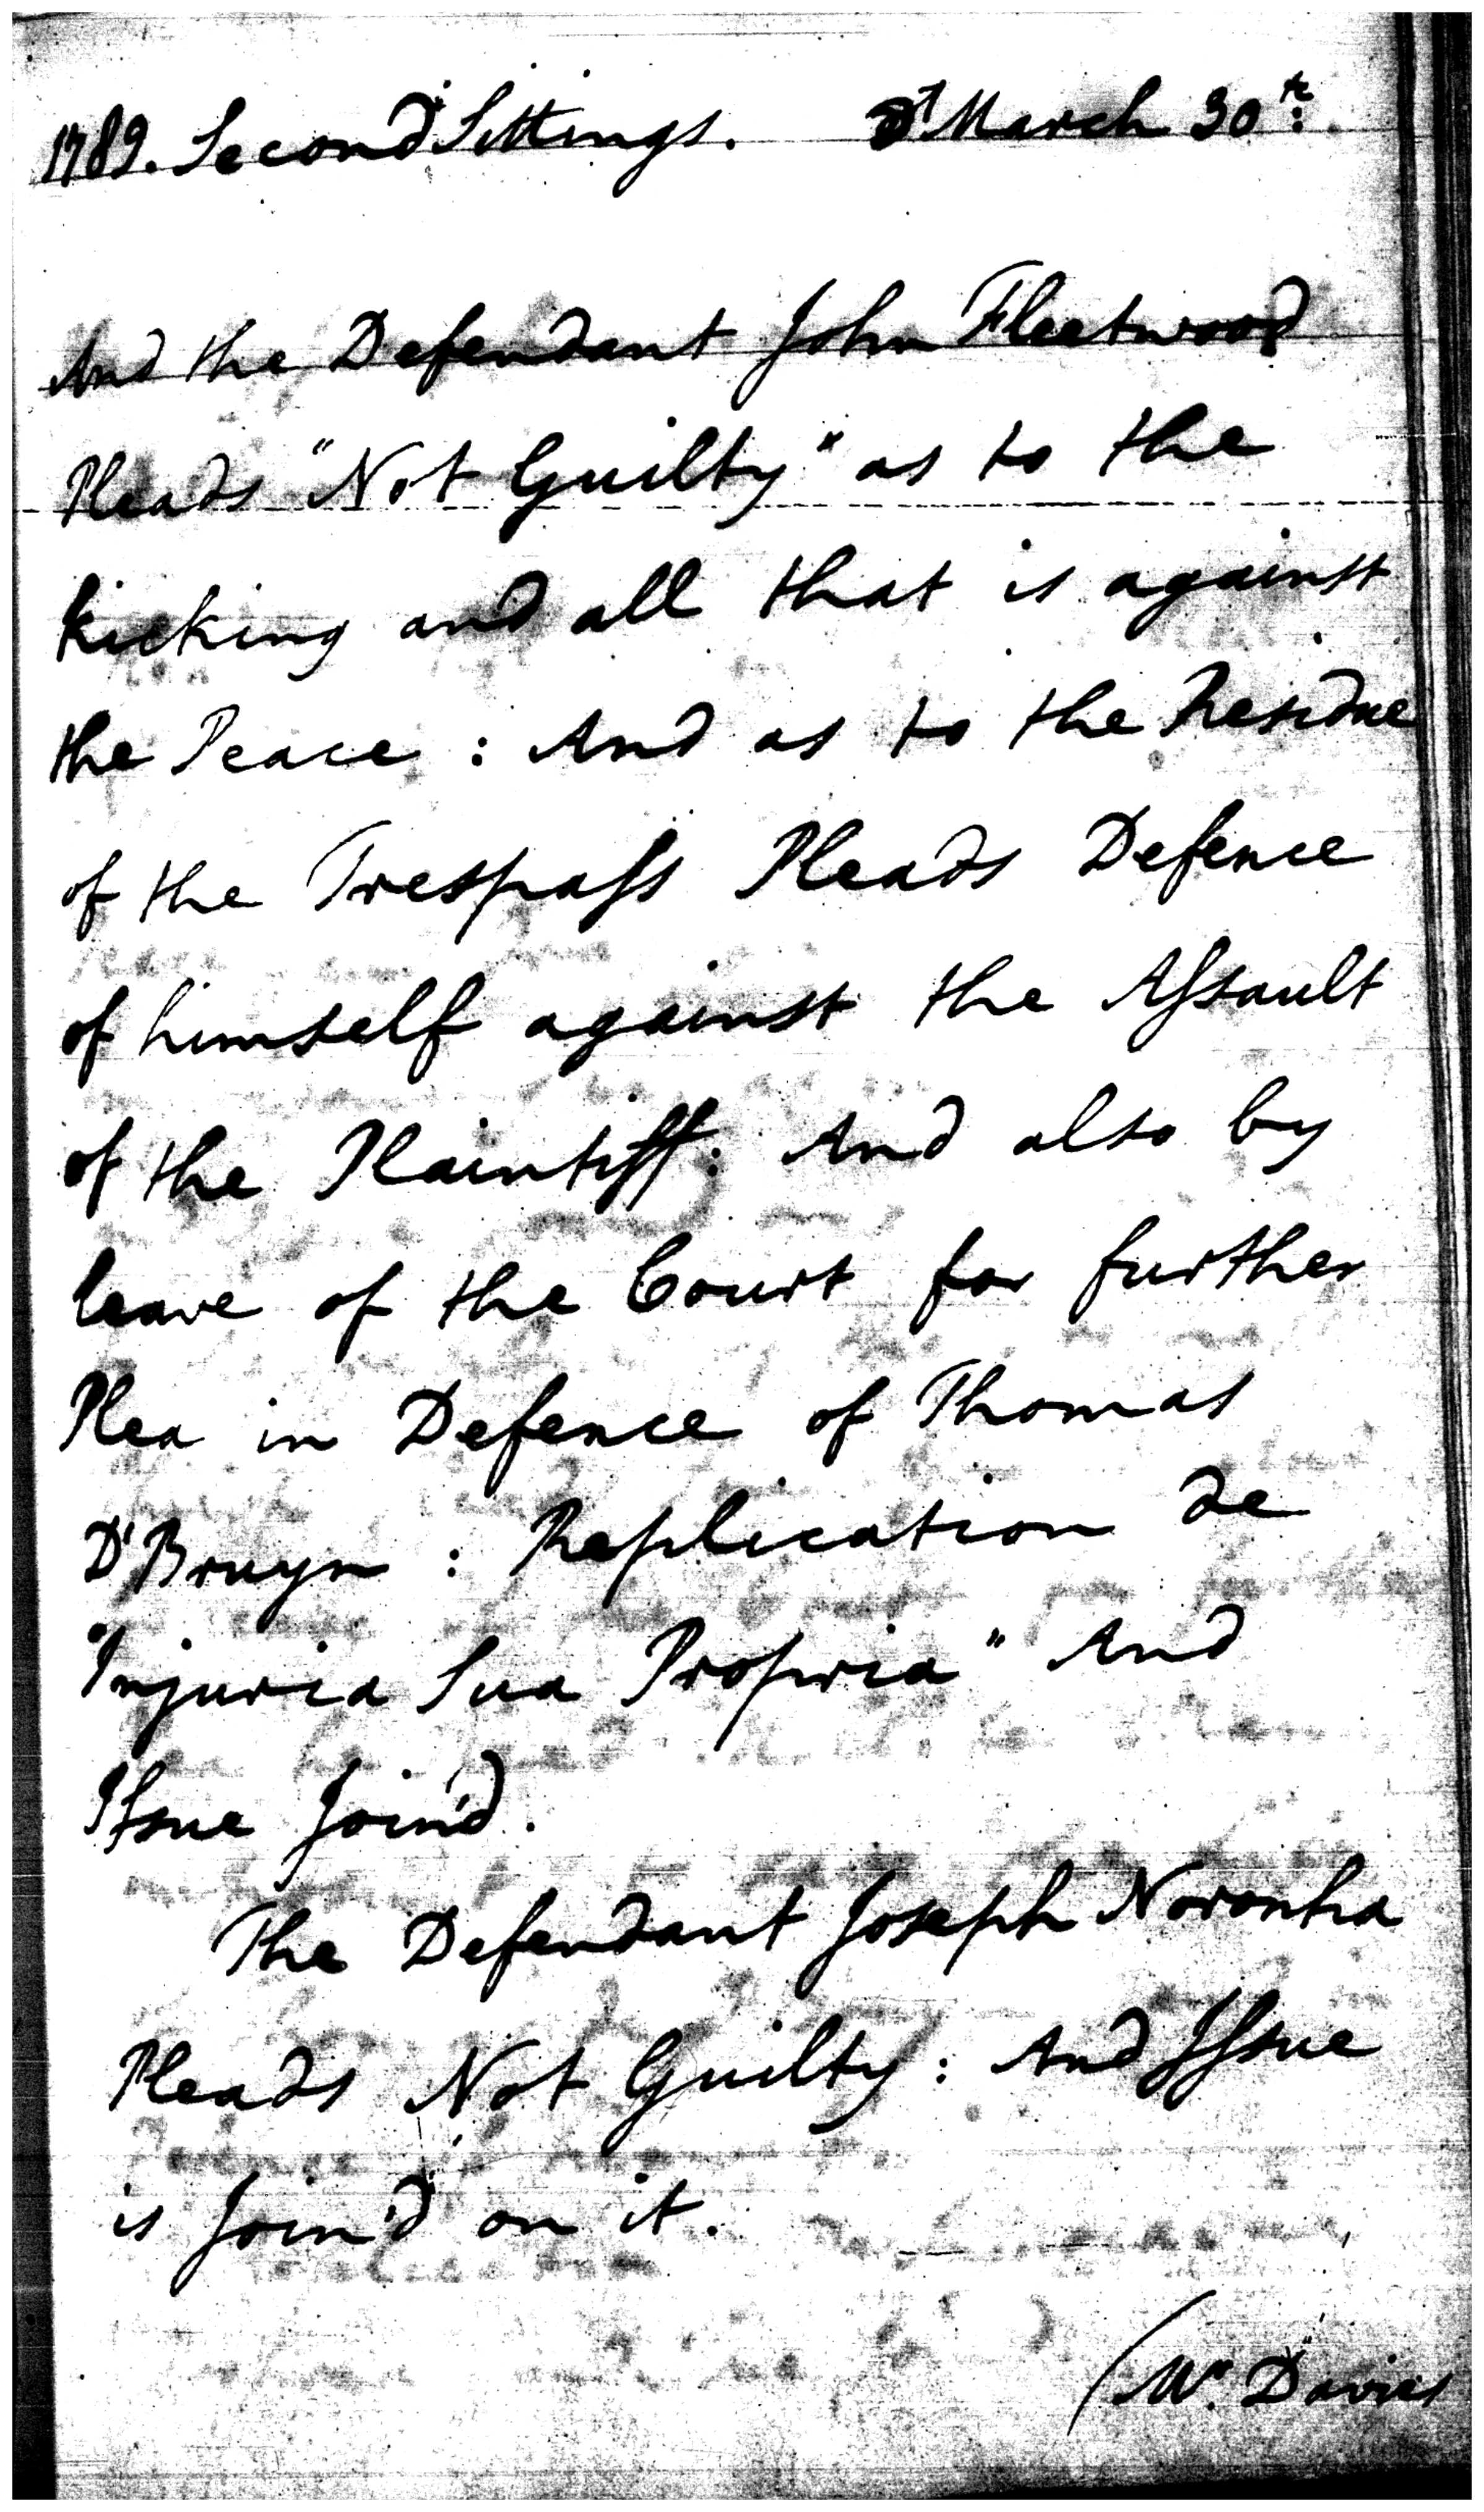 1789. Second Sittings. March 30th:
And the Defendant John Fleetwood
Pleads "Not Guilty" as to the
kicking and all that is against
the Peace : And as to the Residue
of the Trespass Pleads Defence
of himself against the Assault
of the Plaintiff: And also by
leave of the Court for further
Plea in Defence of Thomas
D'Bruyn : Replication de
"Injuria Sua Propria" And
Issue Join'd.
The Defendant Joseph Noronha
Pleads Not Guilty : And Issue
is Join'd on it.
(Mr. Davies